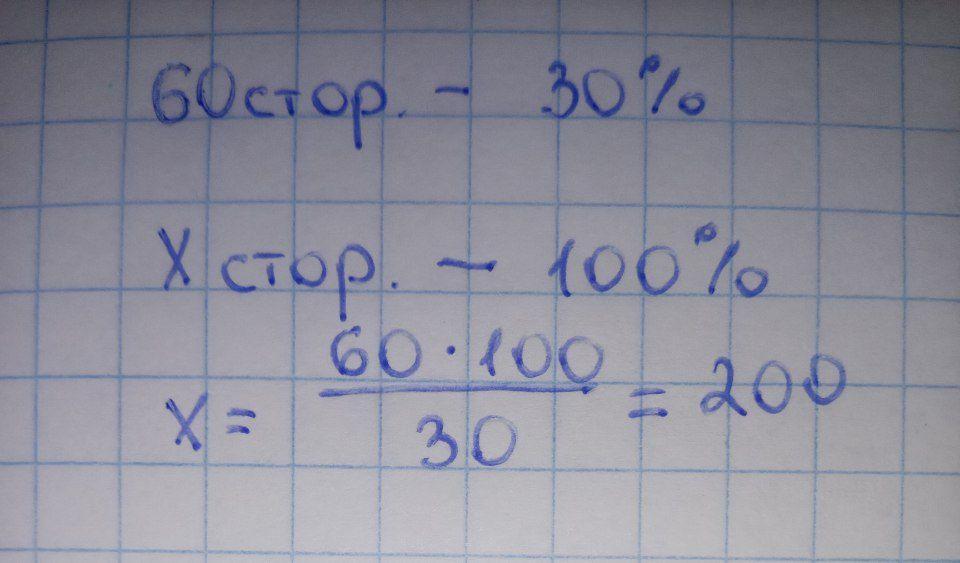 60 стор. - 30%
X стор. - 100%
X = 60 · 100 / 30 = 200